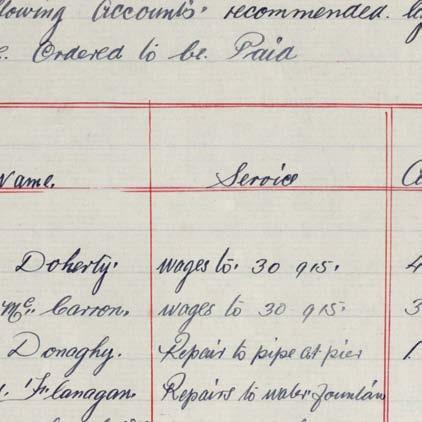 llowing Accounts recommended.
Ordered to be Paid
Name. Service
Doherty. wages to. 30 9 15. 4
Mc. Carron. wages to 30 9 15. 3
Donaghy. Repair to pipe at pier 1
Flanagan. Repairs to water fountain